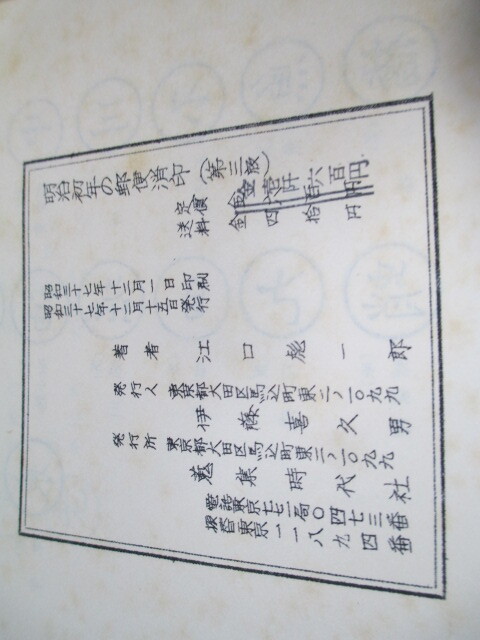 明治初年の郵便消印（第三版）
定価 金壱阡六百円
送料 金四拾円
昭和三十七年十二月一日印刷
昭和三十七年十二月十五日発行
著者 江口彪一郎
発行人 東京都大田区馬込町東二ノ一〇九九
伊藤喜久男
発行所 東京都大田区馬込町東二ノ一〇九九
蒐集時代社
電話東京七七一局〇四七三番
振替東京一一八九四番